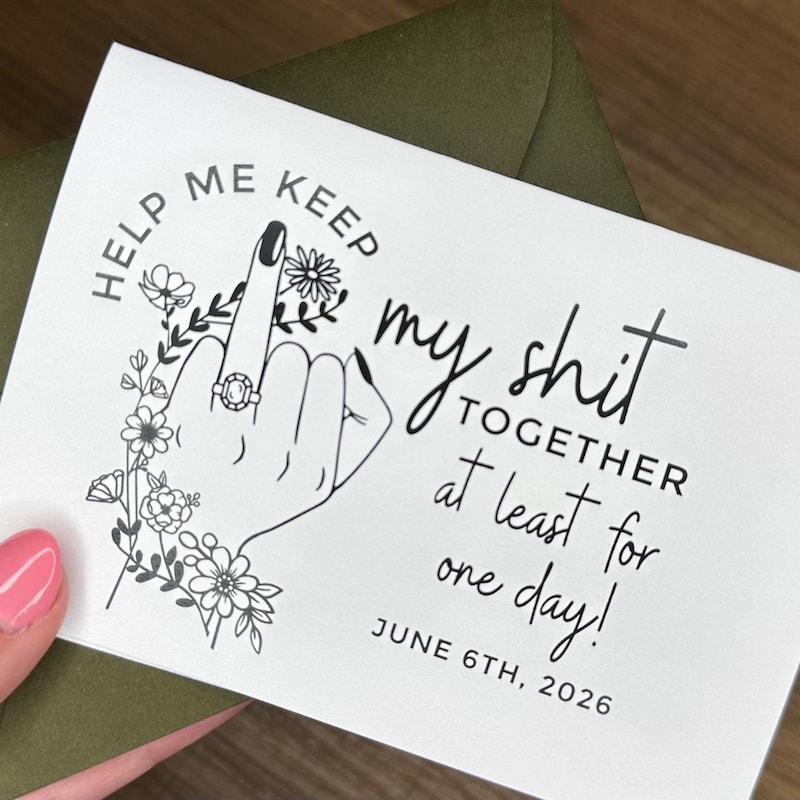 HELP ME KEEP
my shit
TOGETHER
at least for
one day!
JUNE 6TH, 2026